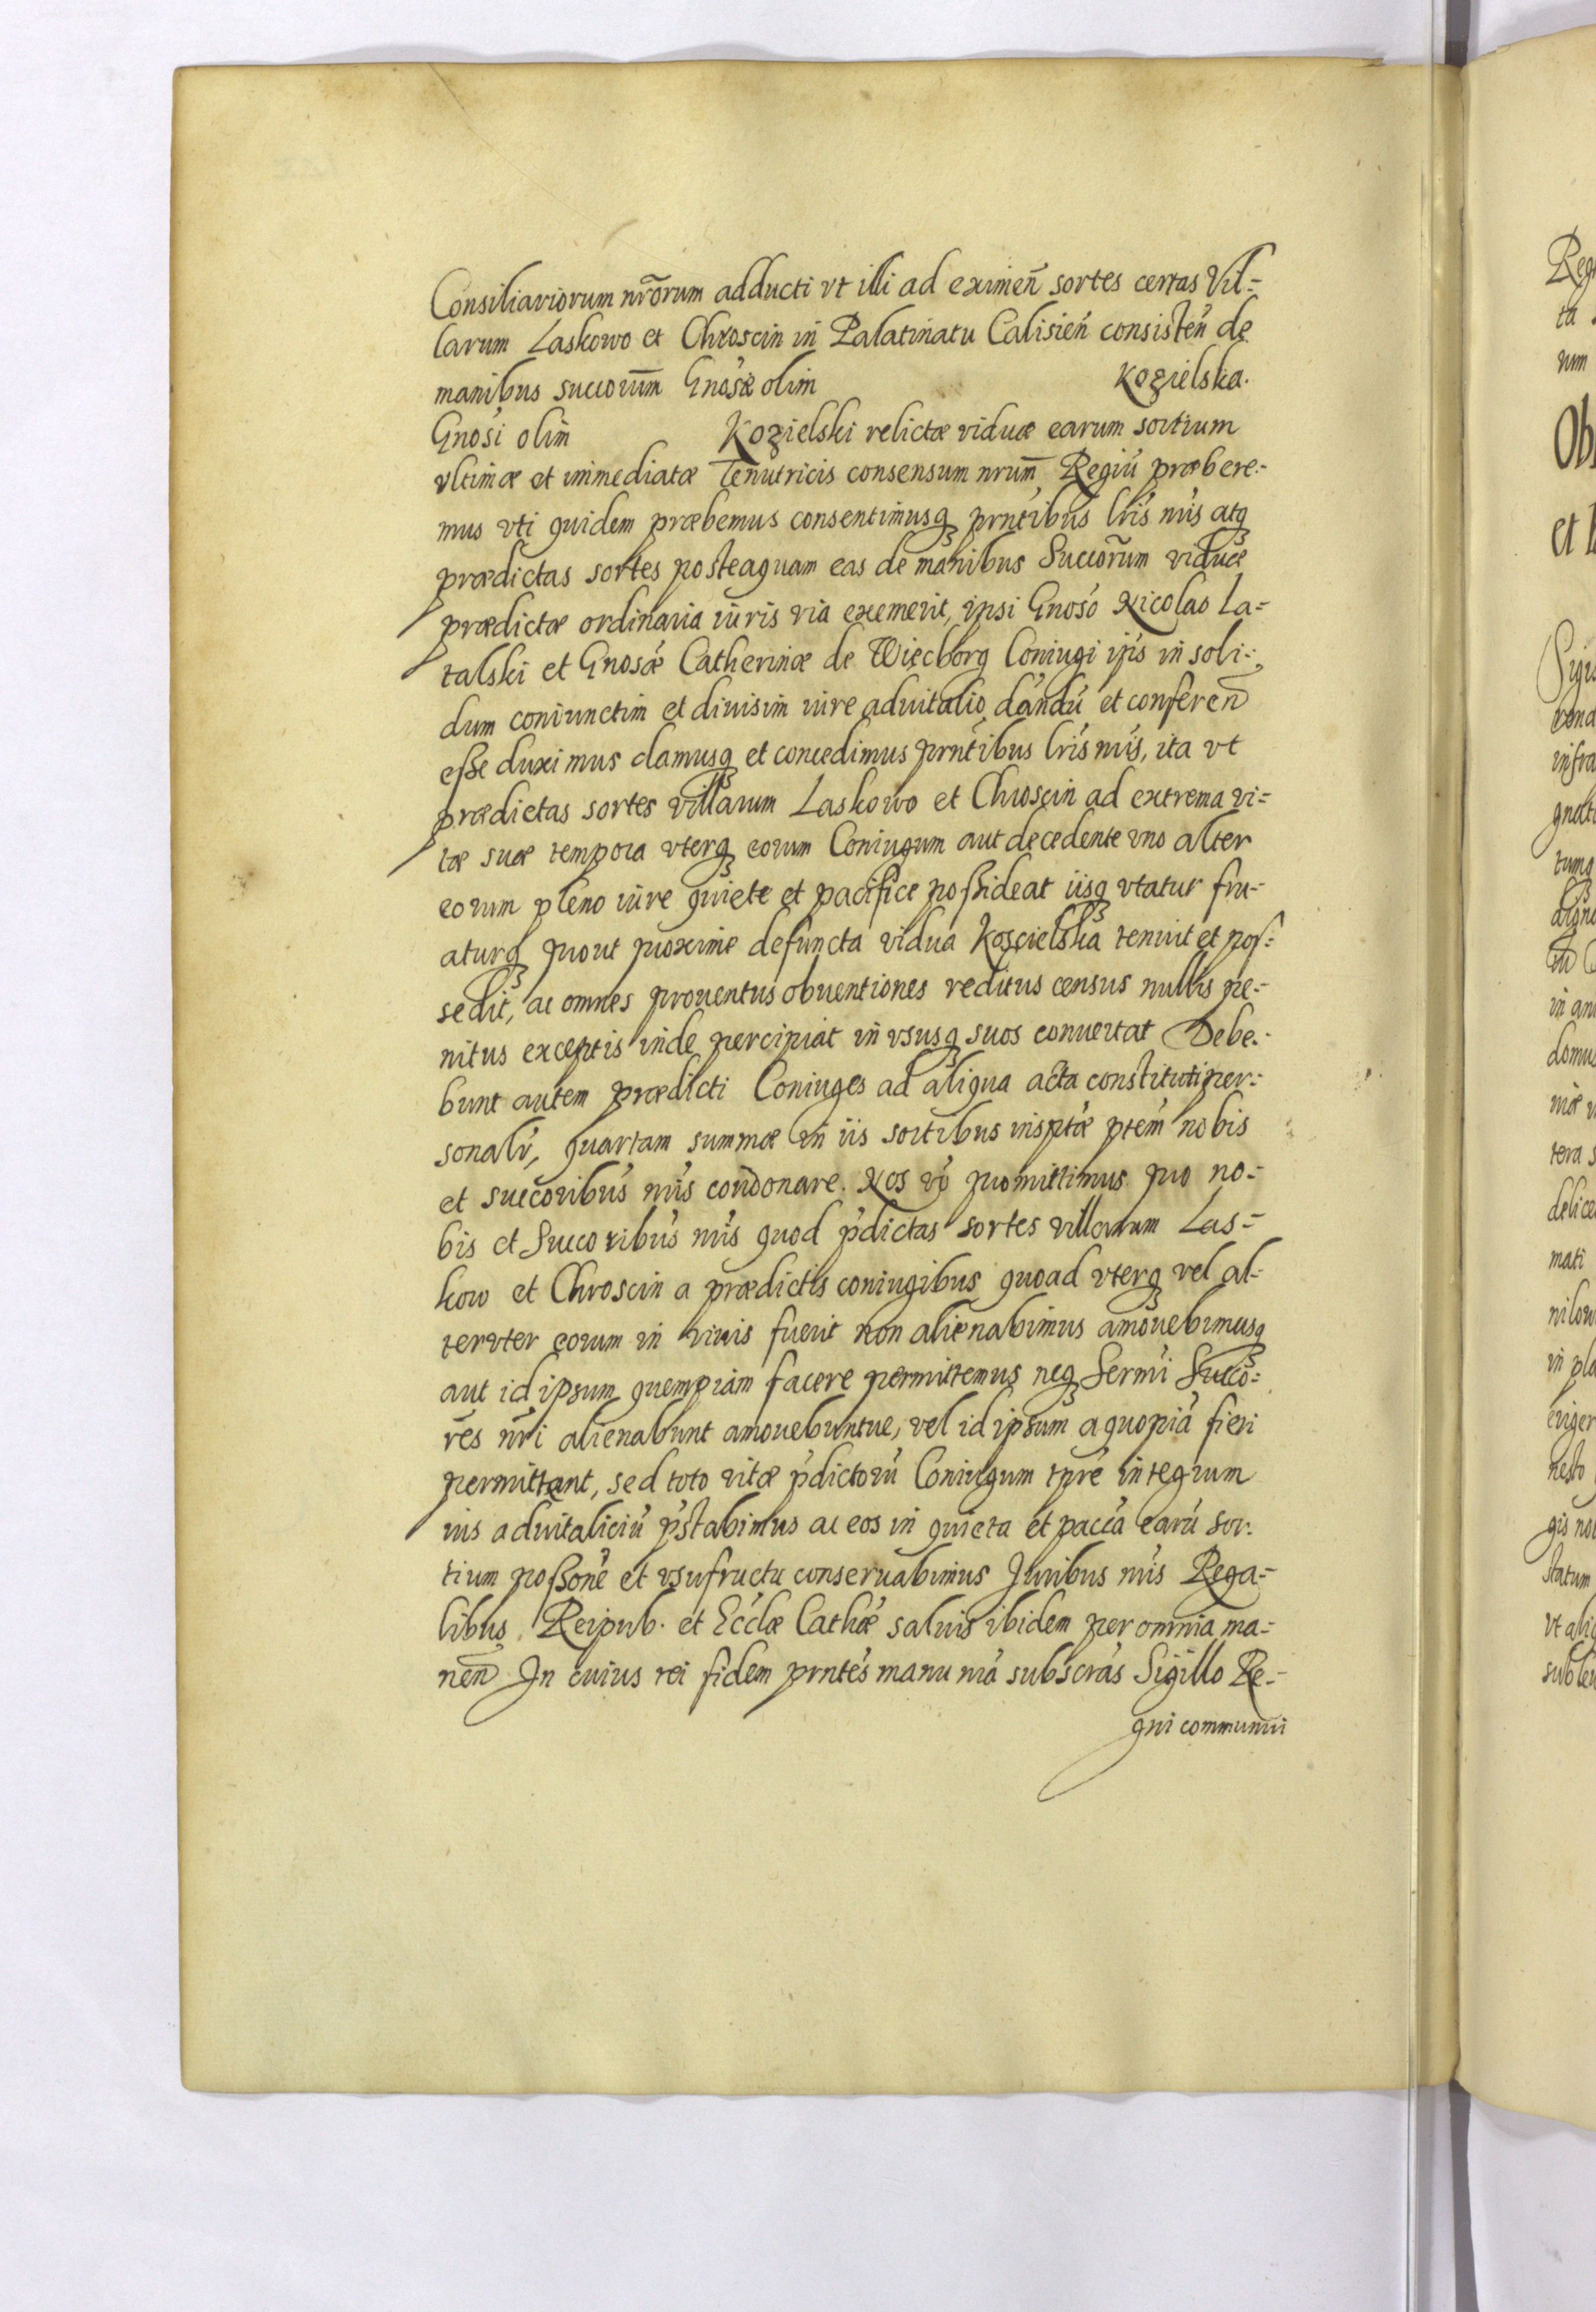 Consiliariorum nrõrum adducti vt illi ad eximeñ sortes certas Vil=
larum Laskowo et Chroscin in Palatinatu Calisień consisteń de
manibus succorum̃ Gnosæ olim Kozielska.
Gnosi olim Kozielski relictæ viduæ earum sortium
vltimæ et immediatæ Tenutricis consensum nrum̃ Regiú præbere=
mus vti quidem præbemus consentimusq₃ prntibus lris nris atq₃
prædictas sortes posteaquam eas de manibus Succorum̃ viduæ
prædictæ ordinaria iuris via exemerit, ipsi Gnoso Nicolao La=
talski et Gnosæ Catherinæ de Więcborg Coniugi ipís in soli=
dum coniunctim et diuisim iure aduitalio dandú et conferen̄
eße duximus damusq₃ et concedimus prntibus lris nris, ita vt
prædictas sortes villarum Laskowo et Chroscin ad extrema vi=
tæ suæ tempora vterq₃ eorum Coniugum aut decedente vno alter
eorum pleno iure quiete et pacifice poßideat iisq₃ vtatur fru=
aturq₃ prout proxime defuncta vidua Koscielska tenuit et pos=
sedit, ac omnes prouentus obuentiones reditus census nullis pe=
nitus exceptis inde percipiat in vsusq₃ suos conuertat Debe=
bunt autem prædicti Coniuges ad aliqua acta constituti per=
sonalr, quartam summæ in iis sortibus insptæ ptem nobis
et succoribus nris condonare. Nos vo promittimus pro no=
bis et Succoribus nris quod pdictas sortes villarum Las=
kow et Chroscin a prædictis coniugibus quoad vterq₃ vel al=
teruter eorum in viuis fuerit non alienabimus amouebimusq₃
aut id ipsum quempiam facere permittemus neq₃ Sermi Succo=
res nri alienabunt amouebuntue, vel id ipsum a quopiá fieri
permittent, sed toto vitæ pdictorú Coniugum tpre integrum
ius aduitaliciú pstabimus ac eos in quieta et pacca earú sor=
tium poßone et vsufructu conseruabimus Juribus nris Rega=
libus, Reipub. et Ecclæ Cathæ saluis ibidem per omnia ma=
nen̄ In cuius rei fidem prntes manu nra subscras Sigillo Re=
gni communiri